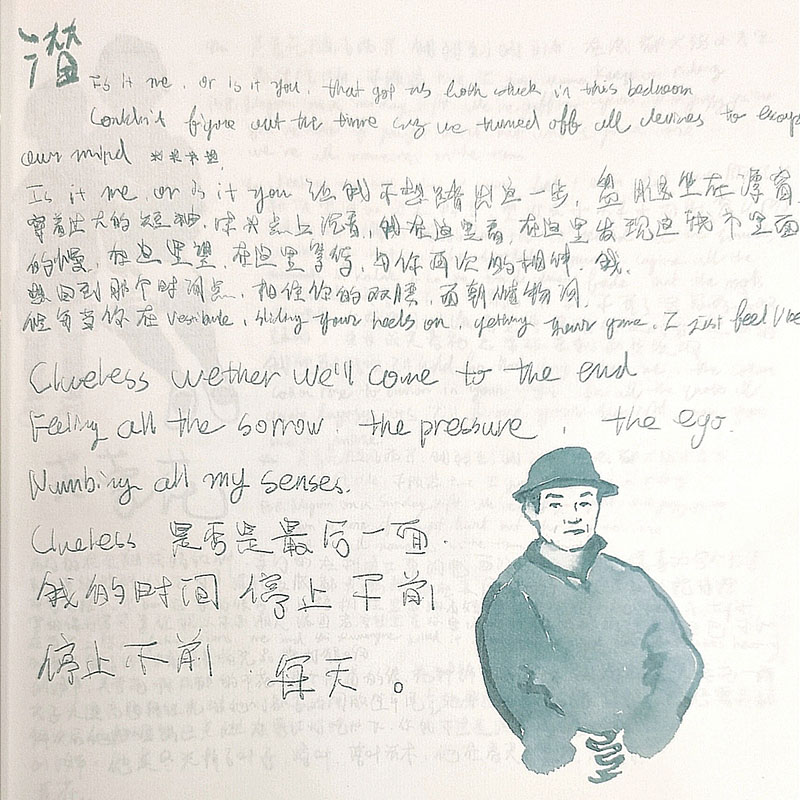 潜
Is it me, or is it you, that got us both stuck in this bedroom
Couldn't figure out the time cuz we turned off all devices to escape
our mind ****
Is it me, or is it you 让我不想踏出这一步, 盘腿坐在
穿着 大的短袖, 点上沉香, 我在这里看, 在这里发现这城市里面
的慢, 在这里望, 在这里等待, 与你再次的相伴, 我
想回到那个时间点, 你的双腰, 面朝
在 vestibule, sliding your heels on, getting your I just feel like
Clueless wether we'll come to the end
Feeling all the sorrow, the pressure, the ego.
Numbing all my senses.
Clueless 是否是最后一面.
我的时间 停止不前
停止不前 每天。